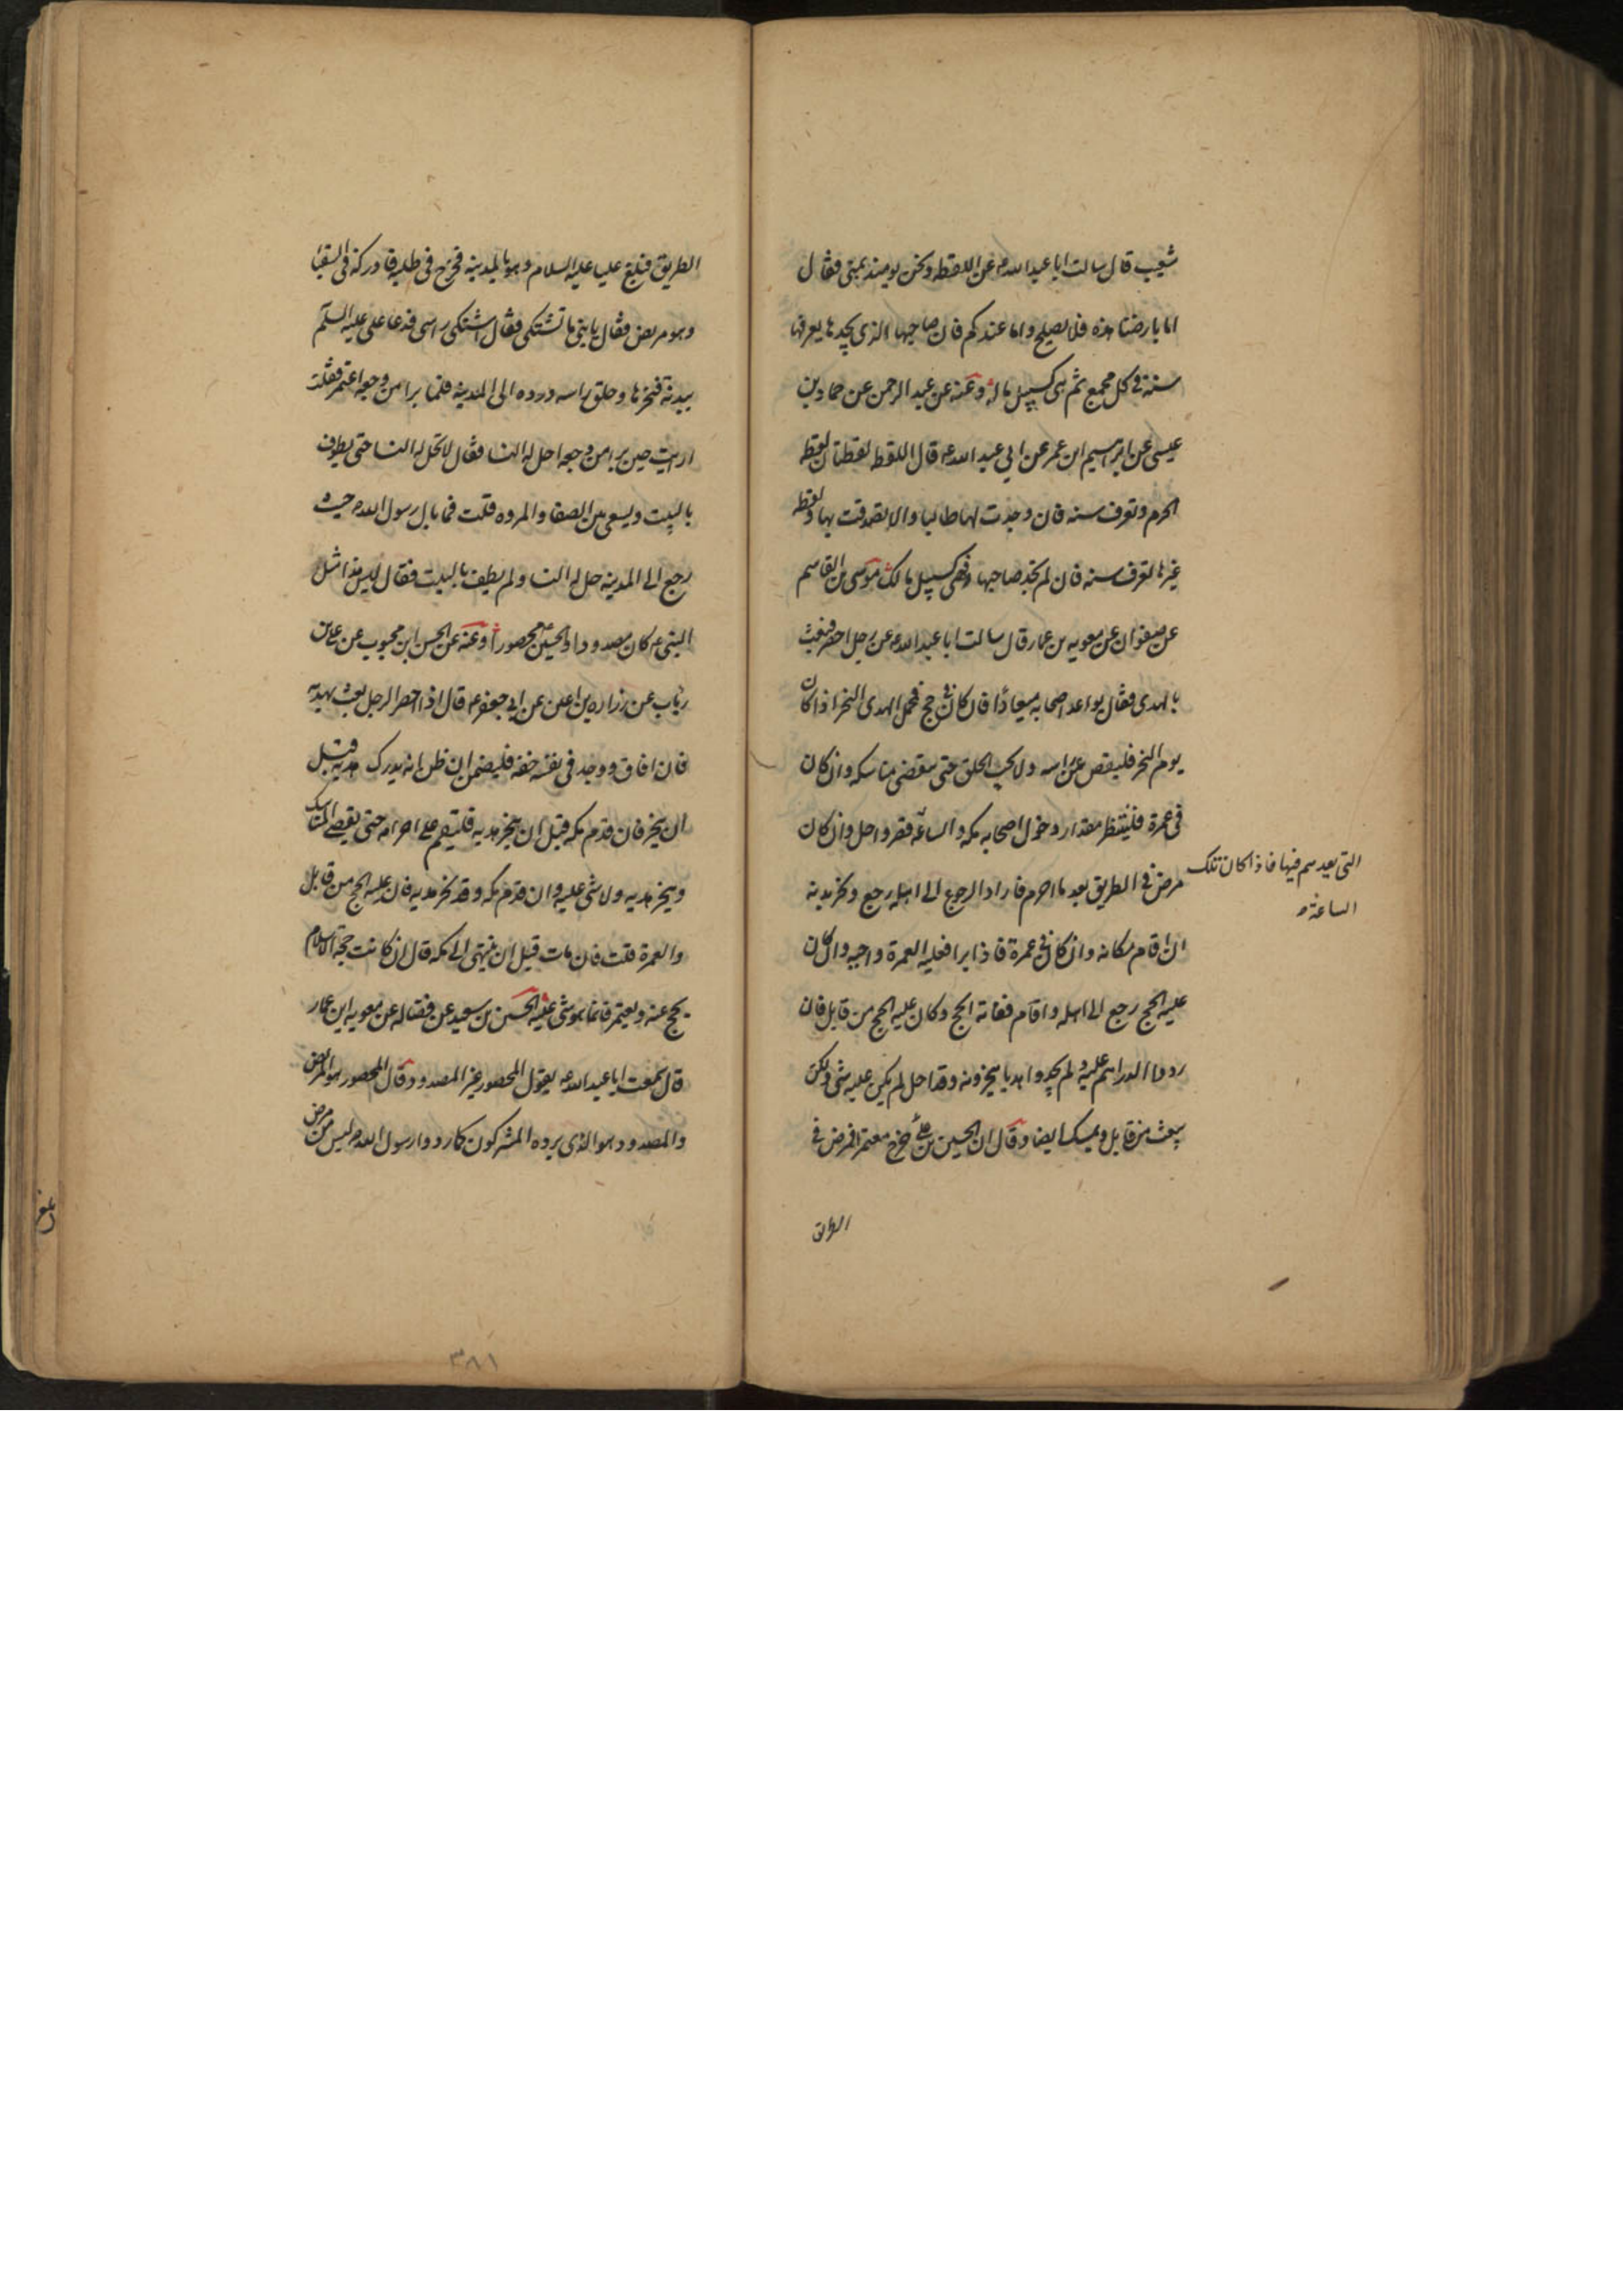 شعيب قال سالت ابا عبد الله ع عن اللقطه ونحن يومئذ بمنى فقال
اما بارضنا هذه فلا يصلح واما عندكم فان صاحبها الذى يجدها يعرفها
سنة فى كل مجمع ثم هى كسبيل ماله وعنه عن عبد الرحمن عن حماد بن
عيسى عن ابرهيم ابن عمر عن ابى عبد الله ع قال اللقطه لقطتان لقطه
الحرم وتعرف سنه فان وجدت لها طالبا والا تصدقت بها ولقطة
غيرها تعرف سنه فان لم تجد صاحبها فهى كسبيل مالك موسى بن القاسم
عن صفوان عن معويه بن عمار قال سالت ابا عبد الله ع عن رجل احصر فبعث
بالهدى فقال يواعد اصحابه ميعادا فان كان فى حج فمحل الهدى النحر اذا كان
يوم النحر فليقص من راسه ولا يجب الحلق حتى يقضى مناسكه وان كان
فى عمرة فلينتظر مقدار دخول اصحابه مكه والساعه قصر واحل وان كان
التى يعدهم فيها فاذا كان تلك
الساعة
مرض فى الطريق بعد ما احرم فاراد الرجوع الى اهله رجع ونحر بدنه
ان اقام مكانه وان كان فى عمرة فاذا برا فعليه العمرة واجبه وان كان
عليه الحج رجع الى اهله واقام ففاته الحج وكان عليه الحج من قابل فان
ردوا الدراهم عليه ولم يجدوا هديا ينحرونه وقد احل لم يكن عليه شى ولكن
يبعث من قابل ويمسك ايضا وقال ان الحسين بن على خرج معتمرا فمرض فى
الطريق
الطريق فبلغ عليا عليه السلام وهو بالمدينه فخرج فى طلبه فادركه فى السقيا
وهو مريض فقال يا بنى ما تشتكى فقال اشتكى راسى فدعا على عليه السلم
ببدنة فنحرها وحلق راسه ورده الى المدينه فلما برا من وجعه اعتمر فقلت
ارايت حين برا من وجعه احل له النسا فقال لا تحل له النسا حتى يطوف
بالبيت ويسعى بين الصفا والمروه قلت فما بال رسول الله ص حيث
رجع الى المدينه حل له النسا ولم يطف بالبيت فقال ليس هذا مثل
النبى ص كان مصدودا والحسين ع محصورا وعنه عن الحسن ابن محبوب عن على بن
رئاب عن زراره بن اعين عن ابى جعفر ع قال اذا احصر الرجل بعث بهديه
فان افاق ووجد فى نفسه خفه فليمض ان ظن انه يدرك هديه قبل
ان ينحر فان قدم مكه قبل ان ينحر هديه فليقم على احرامه حتى يقضى المناسك
وينحر هديه ولا شى عليه وان قدم مكه وقد نحر هديه فان عليه الحج من قابل
والعمرة قلت فان مات قبل ان ينتهى الى مكه قال ان كانت حجة الاسلام
يحج عنه ويعتمر فانما هو شى عليه الحسين بن سعيد عن فضاله عن معويه ابن عمار
قال سمعت ابا عبد الله ع يقول المحصور غير المصدود وقال المحصور هو المريض
والمصدود هو الذى يرده المشركون كما ردوا رسول الله ص ليس من مرض
بلغ
٣٨١